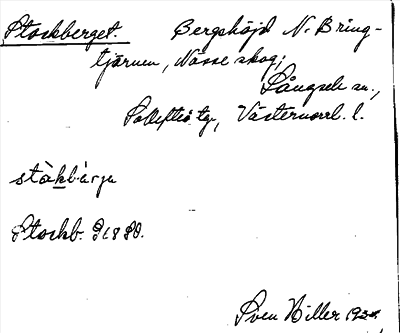 Stockberget. Bergshöjd N. Bring-
tjärnen, Nässe skog;
Långsele sn.,
Sollefteå tg, Västernorrl. l.
ståkbärje
Stockb. GLS
Sven Hiller